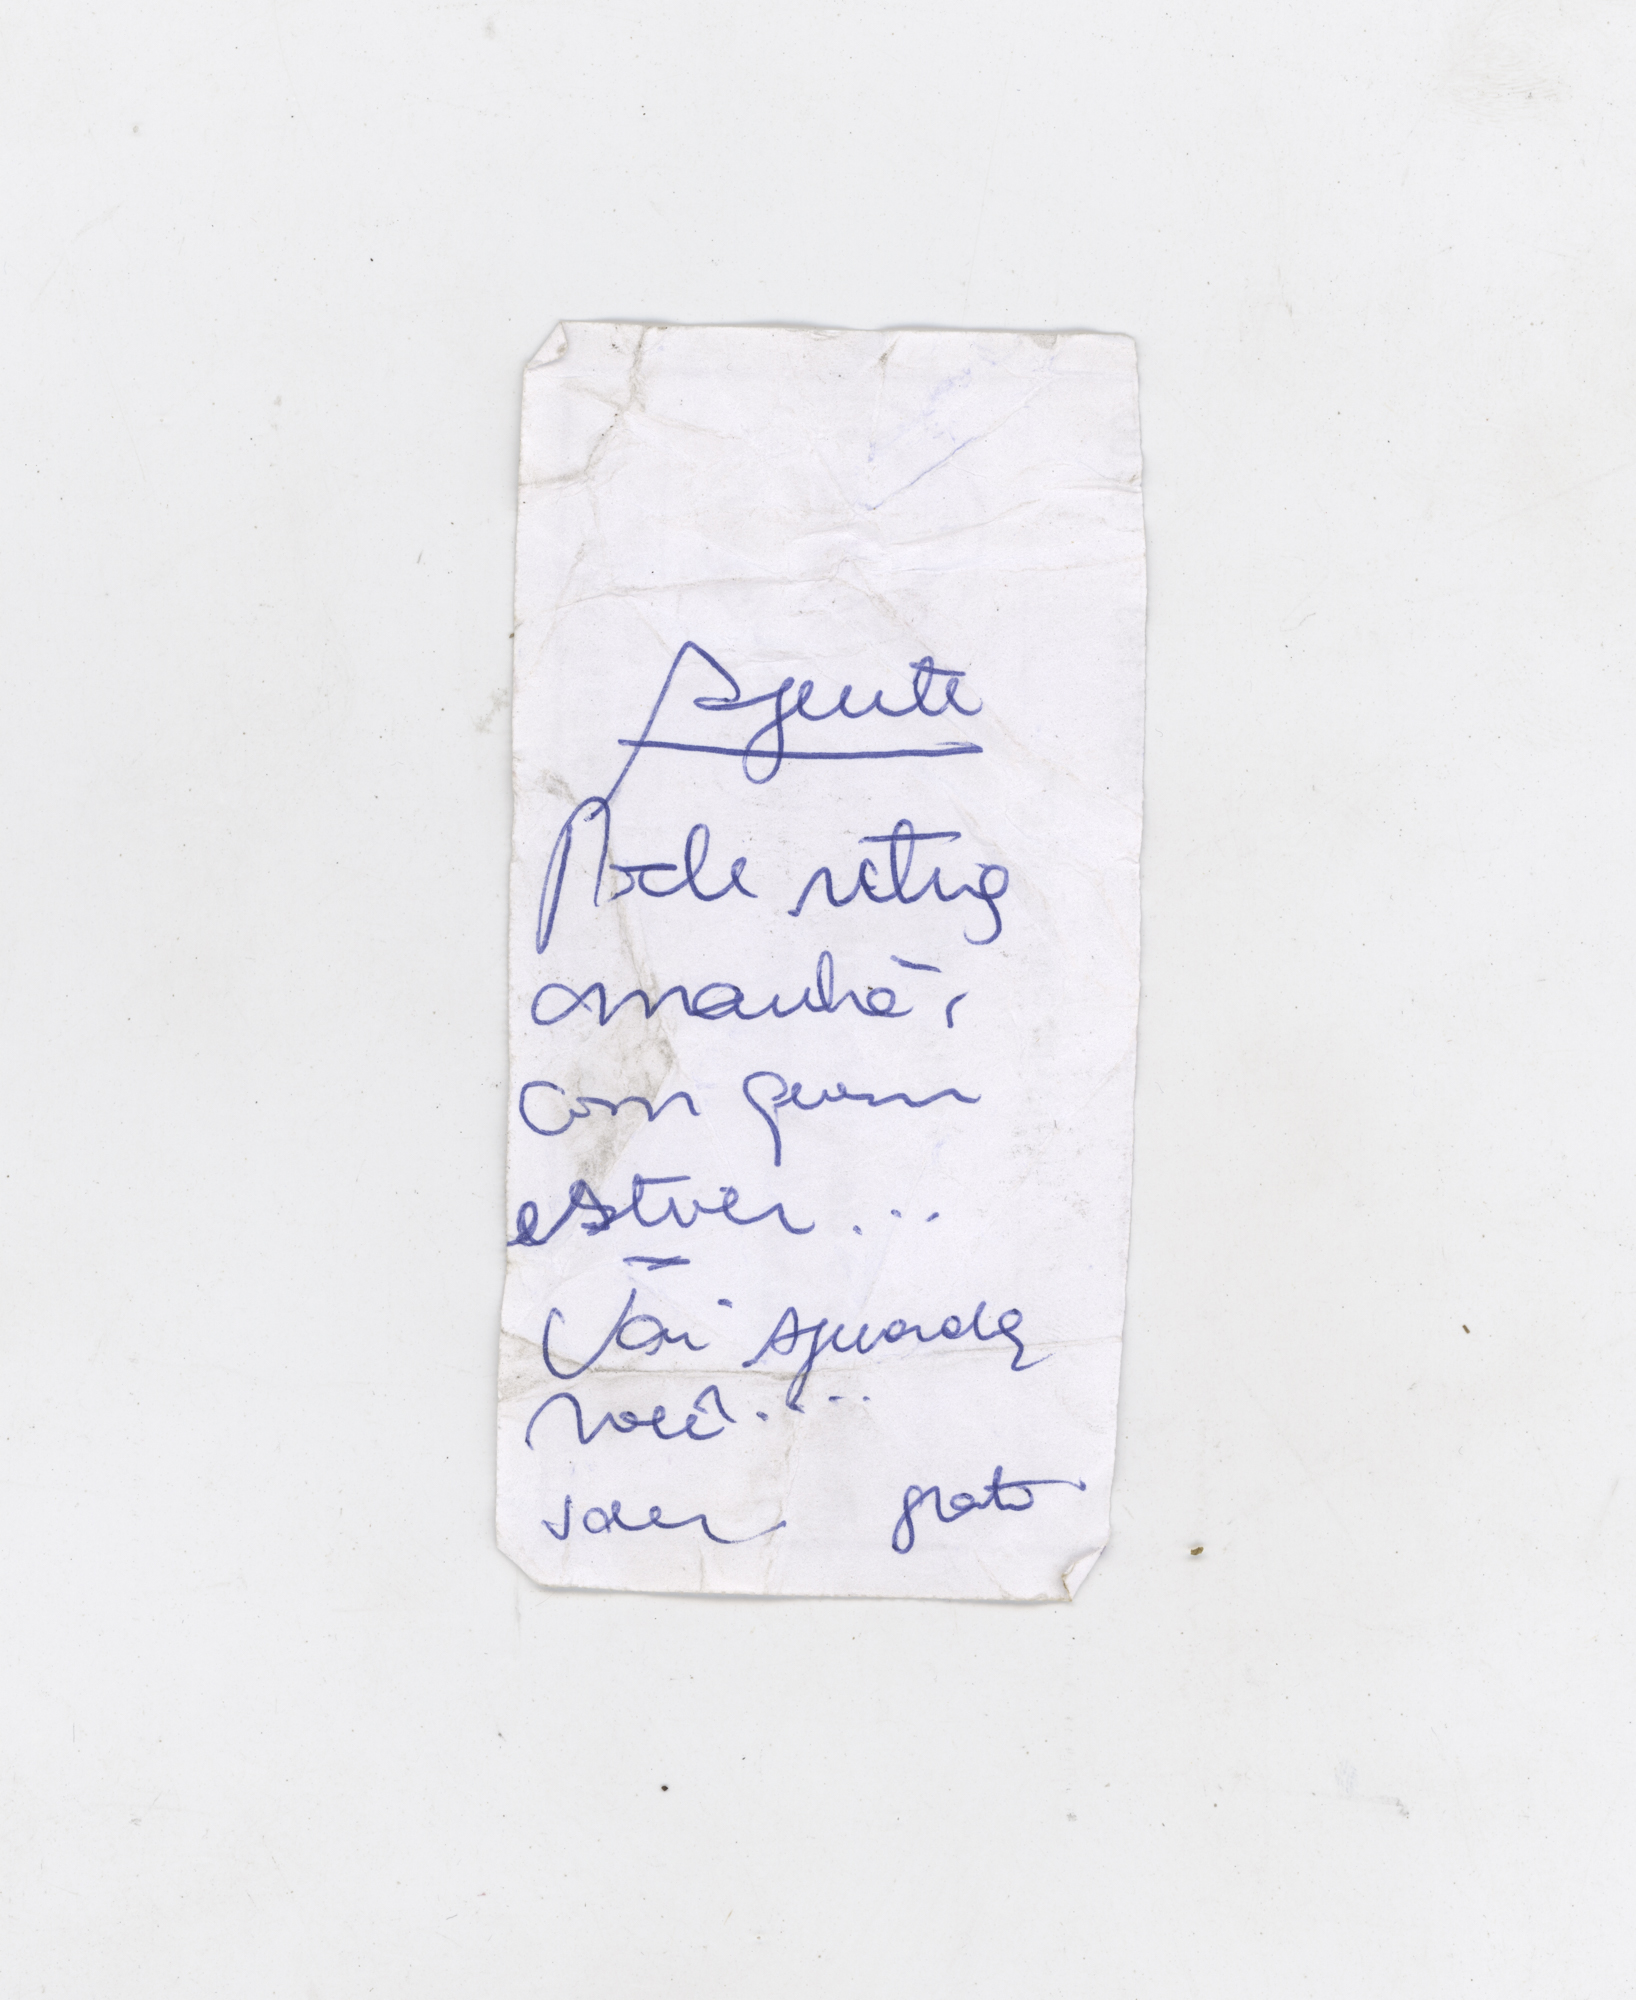 Agente
Pode retirar
amanhã,
com quem
estver...
Vai aguarda
você....
grato